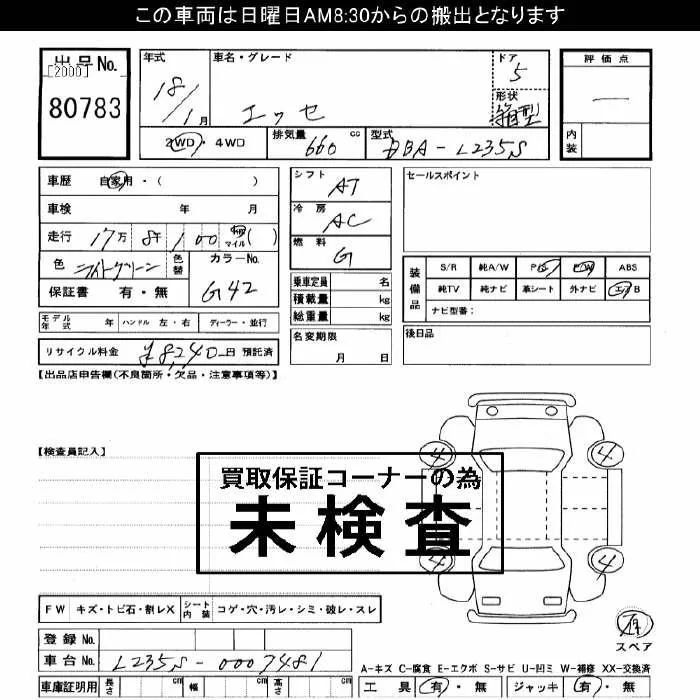 この車両は日曜日AM8:30からの搬出となります
出品No.
[2000]
80783
年式
18/1月
車名・グレード
エッセ
ドア
5
形状
箱型
評価点
―
内装
2WD・4WD
排気量
660 cc
型式
DBA-L235S
車歴 自家用・( )
車検 年 月
走行 17万 8千 100 km マイル( )
色 ライトグリーン
色替
カラーNo.
G42
保証書 有・無
シフト
AT
冷房
AC
燃料
G
乗車定員 名
積載量 kg
総重量 kg
名変期限
月 日
セールスポイント
装備品
S/R 純A/W P/S P/W ABS
純TV 純ナビ 革シート 外ナビ エアB
ナビ型番:
後日品
モデル年式 年 ハンドル 左・右 ディーラー・並行
リサイクル料金 ¥8,240円 預託済
【出品店申告欄(不良箇所・欠品・注意事項等)】
【検査員記入】
買取保証コーナーの為
未検査
4 4
4 4
FW キズ・トビ石・割レX
シート内装 コゲ・穴・汚レ・シミ・破レ・スレ
登録No.
車台No. L235S-0007481
車庫証明用 長さ cm 幅 cm 高さ cm
有
スペア
A-キズ C-腐食 E-エクボ S-サビ U-凹ミ W-補修 XX-交換済
工具 有・無 ジャッキ 有・無